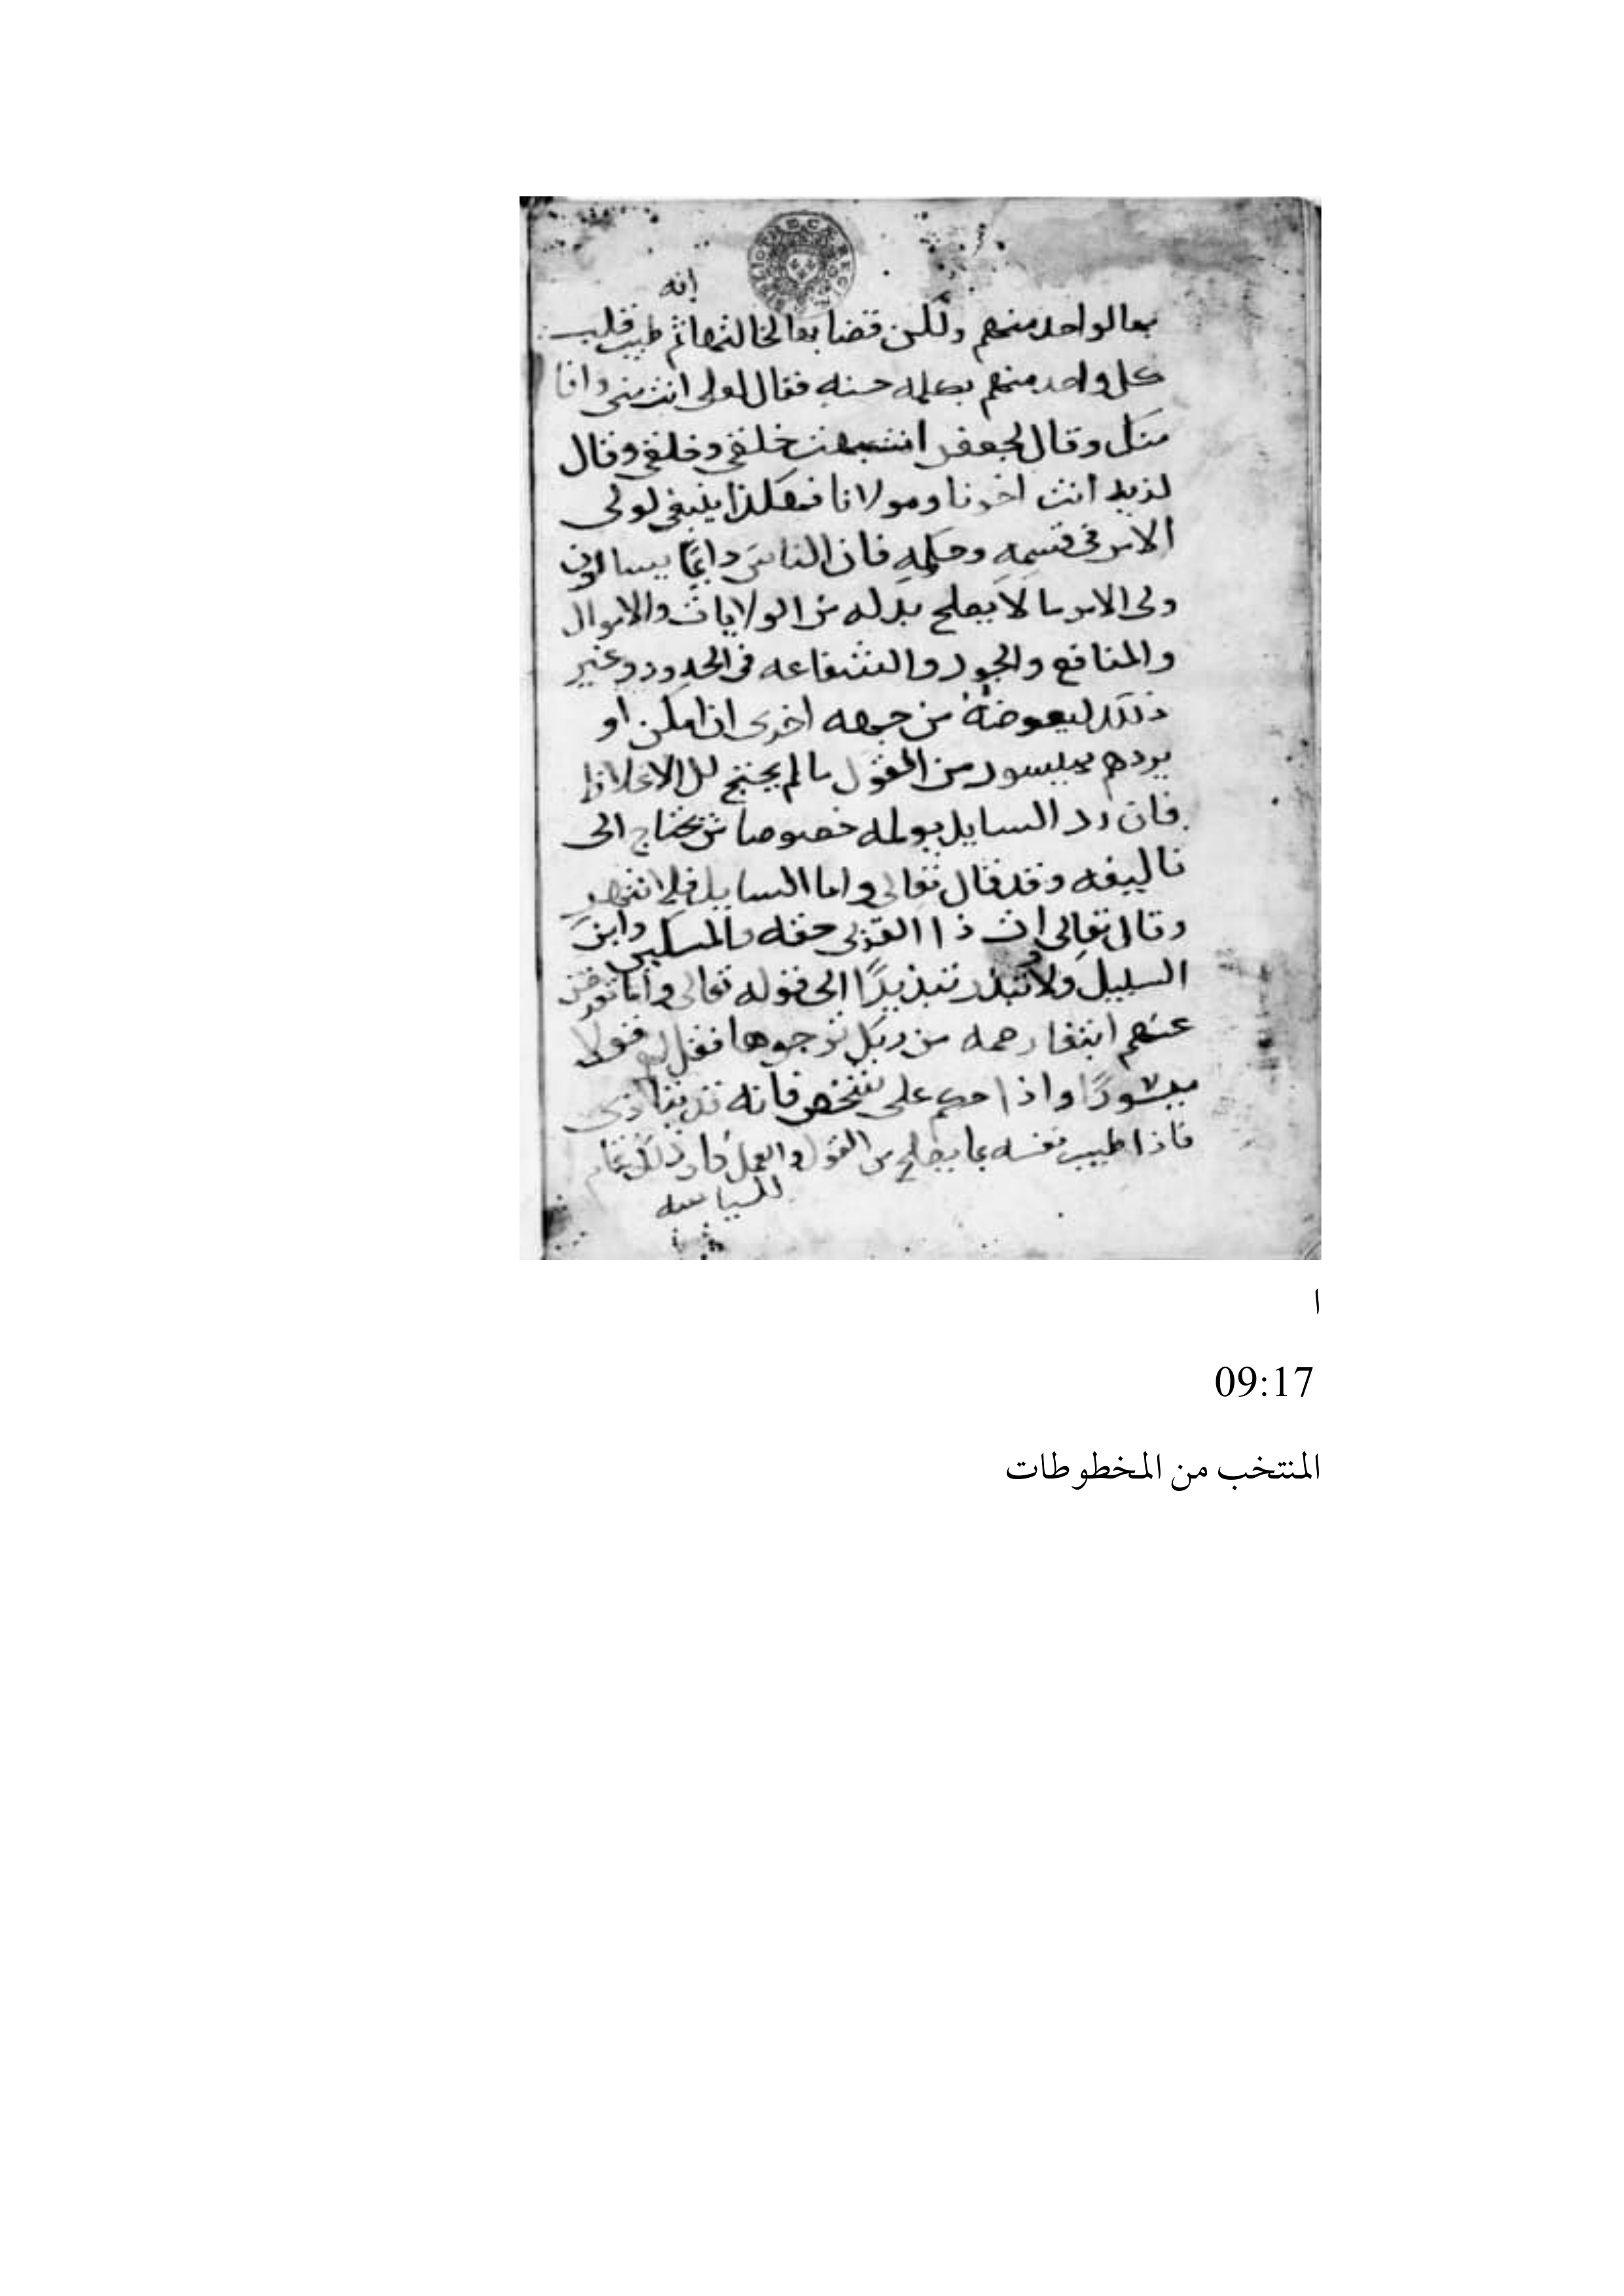 انه
بها لواحد منهم ولكن قضا بها لخالتها ثم طيب قلب
كل واحد منهم بكلمه حسنه فقال لعلى انت منى وانا
منك وقال لجعفر اشبهت خلقى وخلقى وقال
لزيد انت اخونا ومولانا فهكذا ينبغى لولى
الامر فى قسمِهِ وحكمِهِ فان الناسَ دايمًا يسالون
ولى الامر ما لا يصلح بذله من الولايات والاموال
والمنافع والجود والشفاعه فى الحدود وغير
ذلك ليعوضهُ من جهه اخرى ان امكن او
يردهم بميسور من القول ما لم يحتج الاغلاظ
فان رد السايل يولمه خصوصا من يحتاج الى
تاليفه وقد قال تعالى واما السايل فلا تنهر
وقال تعالى ات ذا القربى حقه والمسكين وابن
السبيل ولا تبذر تبذيرًا الى قوله تعالى واما تعرضن
عنهم ابتغا رحمه من ربك ترجوها فقل لهم قولا
ميسورًا واذا حكم على شخص فانه قد يتاذى
فاذا طيب نفسه بما يصلح من القول والعمل كان ذلك تمام
السياسه
ا
09:17
المنتخب من المخطوطات